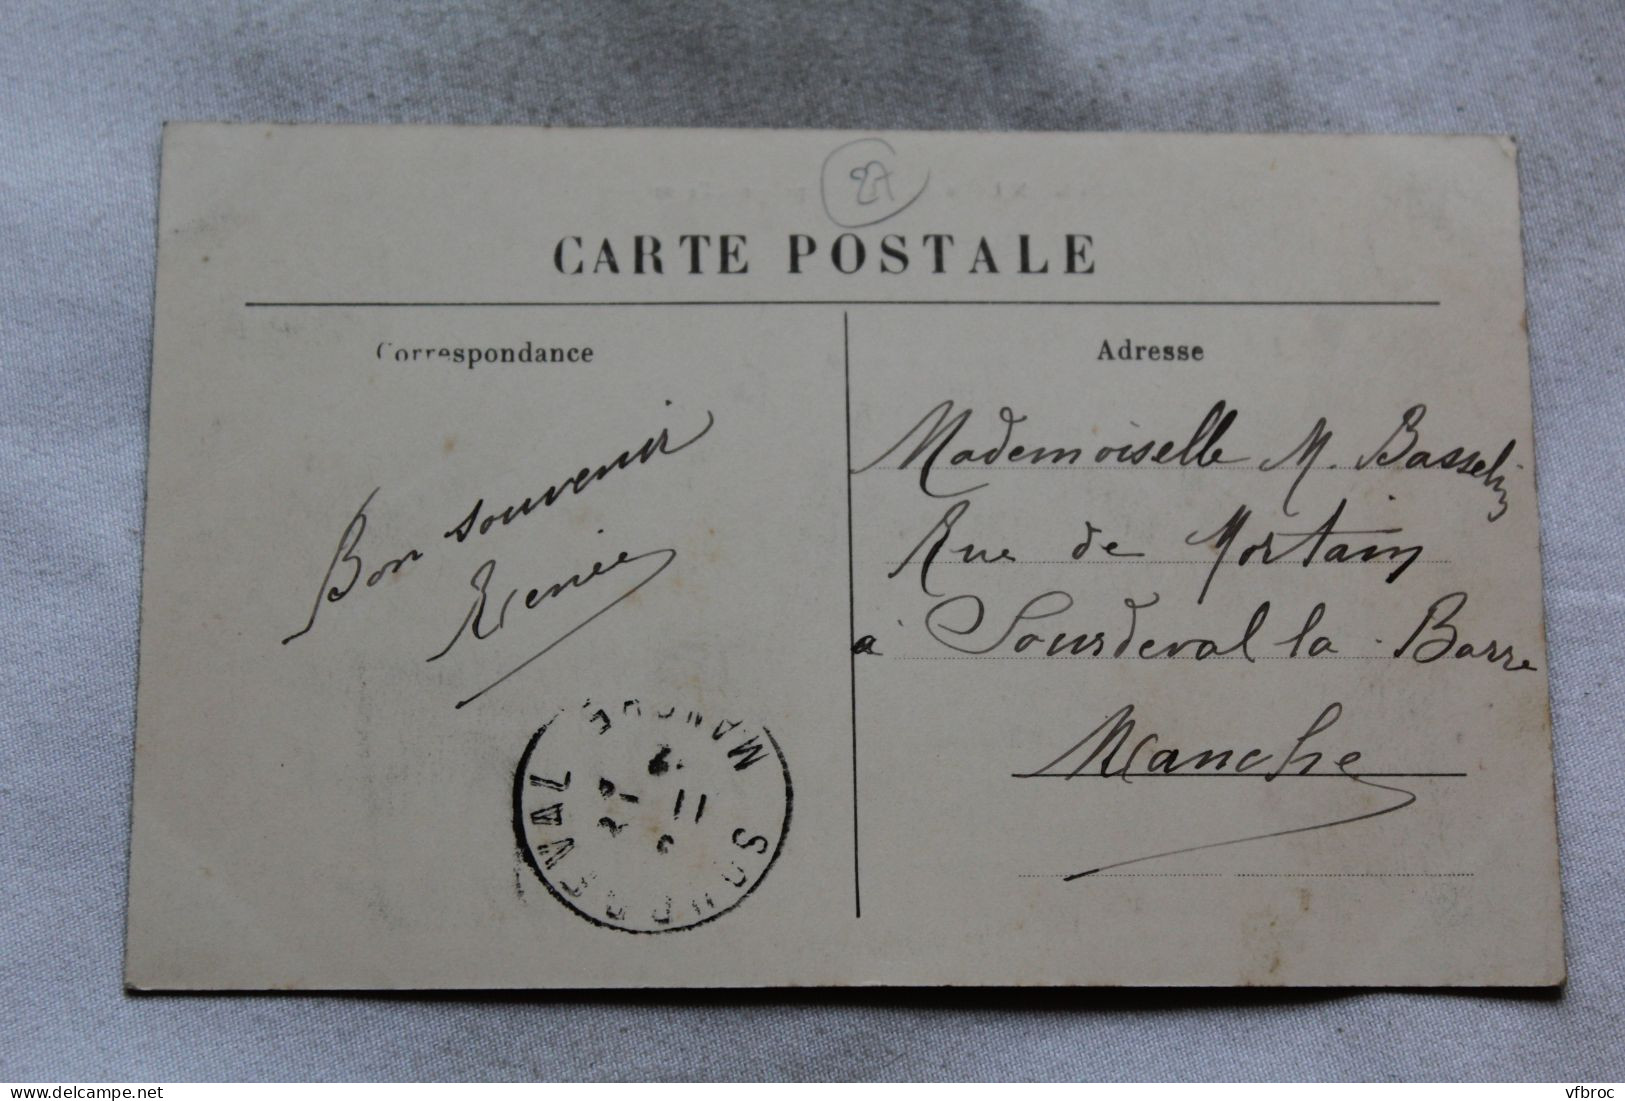 27
CARTE POSTALE
Correspondance
Adresse
Bon souvenir
Renée
Mademoiselle M. Basselin
Rue de Mortain
à Sourdeval la Barre
Manche
SOURDEVAL
MANCHE
11
delcampe.net
vfbroc